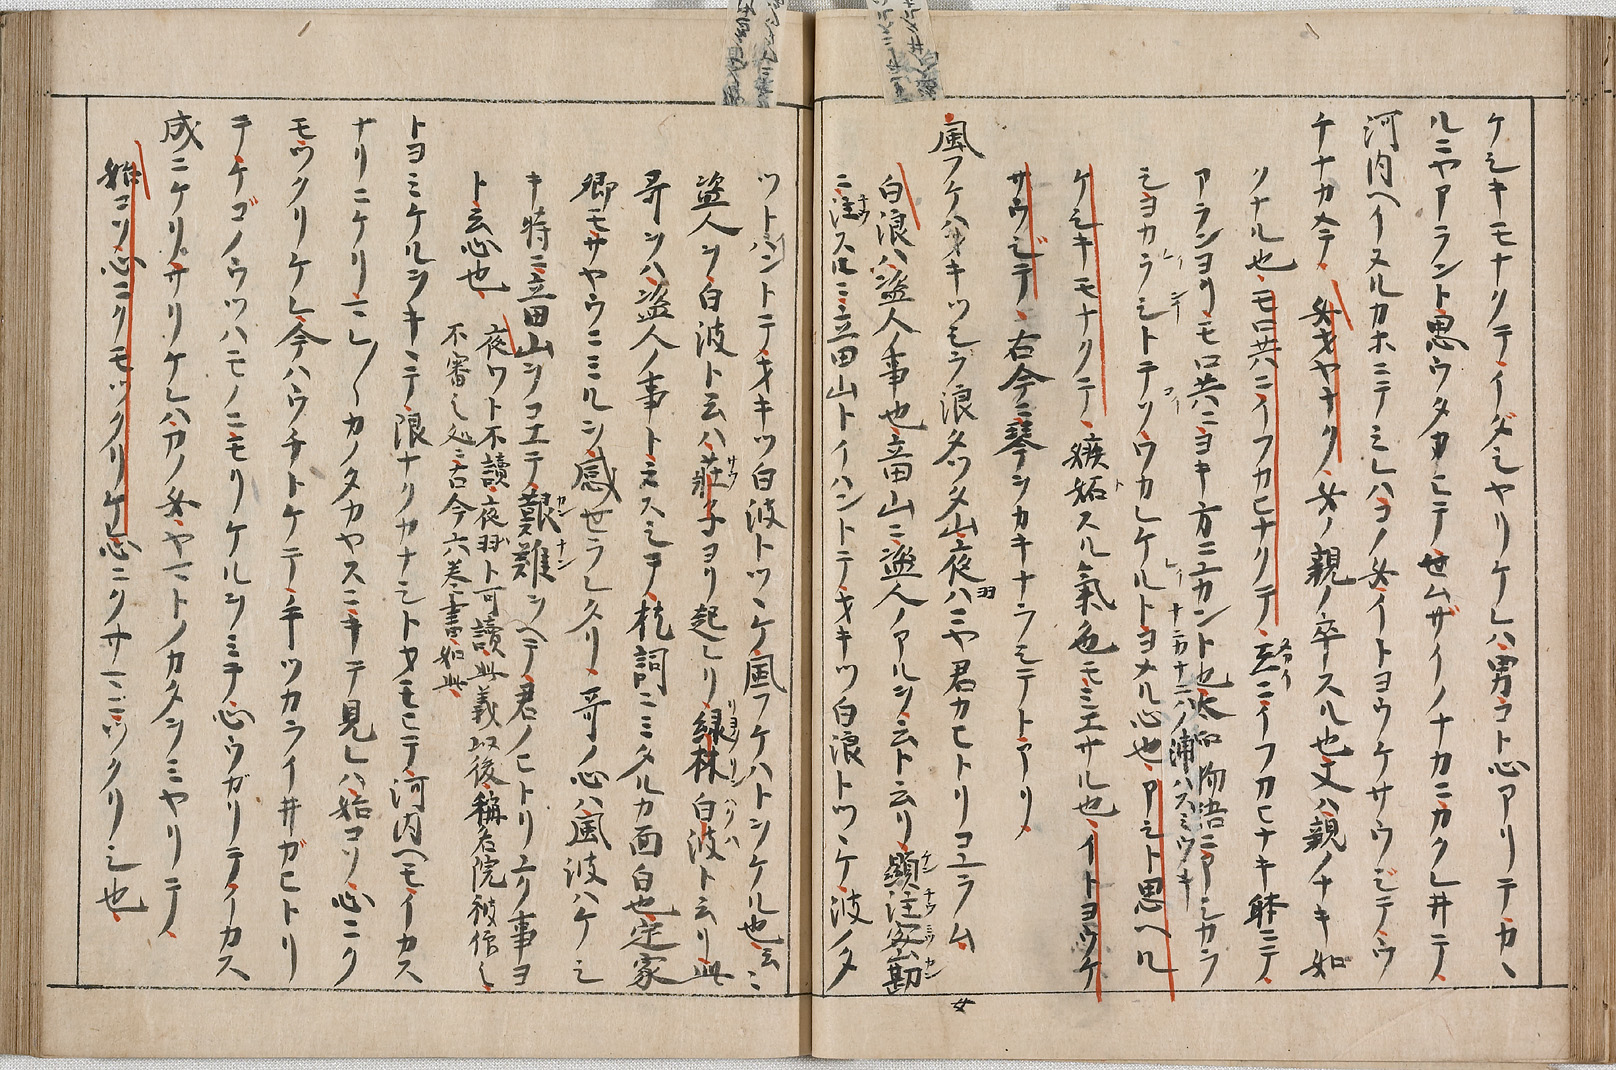 ケシキモナクテイダシヤリケレハ男コト心アリテカヽ
ルニヤアラント思ウタカヒテせムザイノナカニカクレ井テ
河内ヘイヌルカホニテミレハヨノ女イトヨウケサウジテウ
チナカメテ女オヤナク女ノ親ノ卒スル也文ハ親ノナキ如
クナル也モロ共ニイフカヒナクテ互ニイフカヒナキ躰ニテ
アランヨリモロ共ニヨキ方ニユカント也大和物語ニアシカラ
シヨカラシトテソウカレケルトヨメル心也アシト思ヘル
ケシキモナクテ嫉妬スル氣色モミエサル也イトヨウケ
サウジテ右今ニ琴ンカキナラシテトアリ
風フケハオキツシラ浪タツタ山夜ハニヤ君カヒトリコユラム
白浪ハ盗人事也立田山ニ盗人ノアルヲ云ト云リ顕注密勘
ニ注スルニ立田山トイハントテオキツ白浪トツヽケ波ノタ
ツトハントテオキツ白波トツヽケ風フケハトンケル也云ニ
盗人ヲ白波ト云ハ莊子ヨリ起レリ緑林白波ト云リ此
哥ヲハ盗人ノ事トミスシテ枕詞ニミタルカ面白也定家
卿モサヤウニミルヲ感せラレタリ哥ノ心ハ風波ハケシ
キ時ニ立田山ヲコエテ艱難ヲヘテ君ノヒトリユク事ヨ
ト云心也
夜ワト不讀夜羽ト可讀此義以後稱名院被作之
不審之処ニ古今六巻書如此
トヨミケルヲキヽテ限ナクカナシトオモヒテ河内ヘモイカス
ナリニケリマレ〱カノタカヤスニキテ見レハ始コソ心ニク
モツクリケレ今ハウチトケテ手ツカライ井ガヒトリ
テケゴノウツハモノニモリケルヲミテ心ウガリテイカス
成ニケリサリケレハカノ女ヤマトノカタヲミヤリテ
始コソ心ニクモツクリケレ心ニクサマニツクリシ也